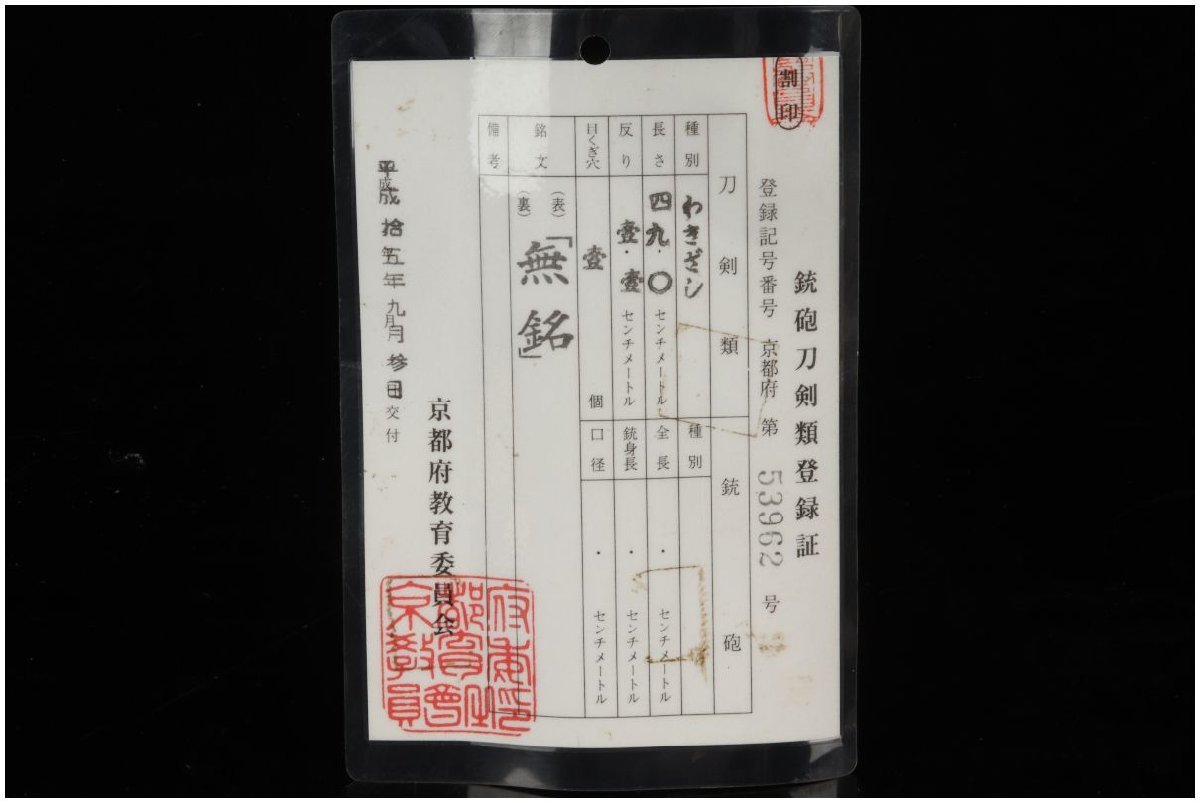 割印
銃砲刀剣類登録証
登録記号番号 京都府 第 53962 号
刀剣類
種別 わきざし
長さ 四九.〇 センチメートル
反り 壹.壹 センチメートル
目くぎ穴 壹 個
銘文 (表) 「無銘」
(裏)
備考
銃砲
種別
全長 ・ センチメートル
銃身長 ・ センチメートル
口径 ・ センチメートル
平成拾五年九月参日交付
京都府教育委員会